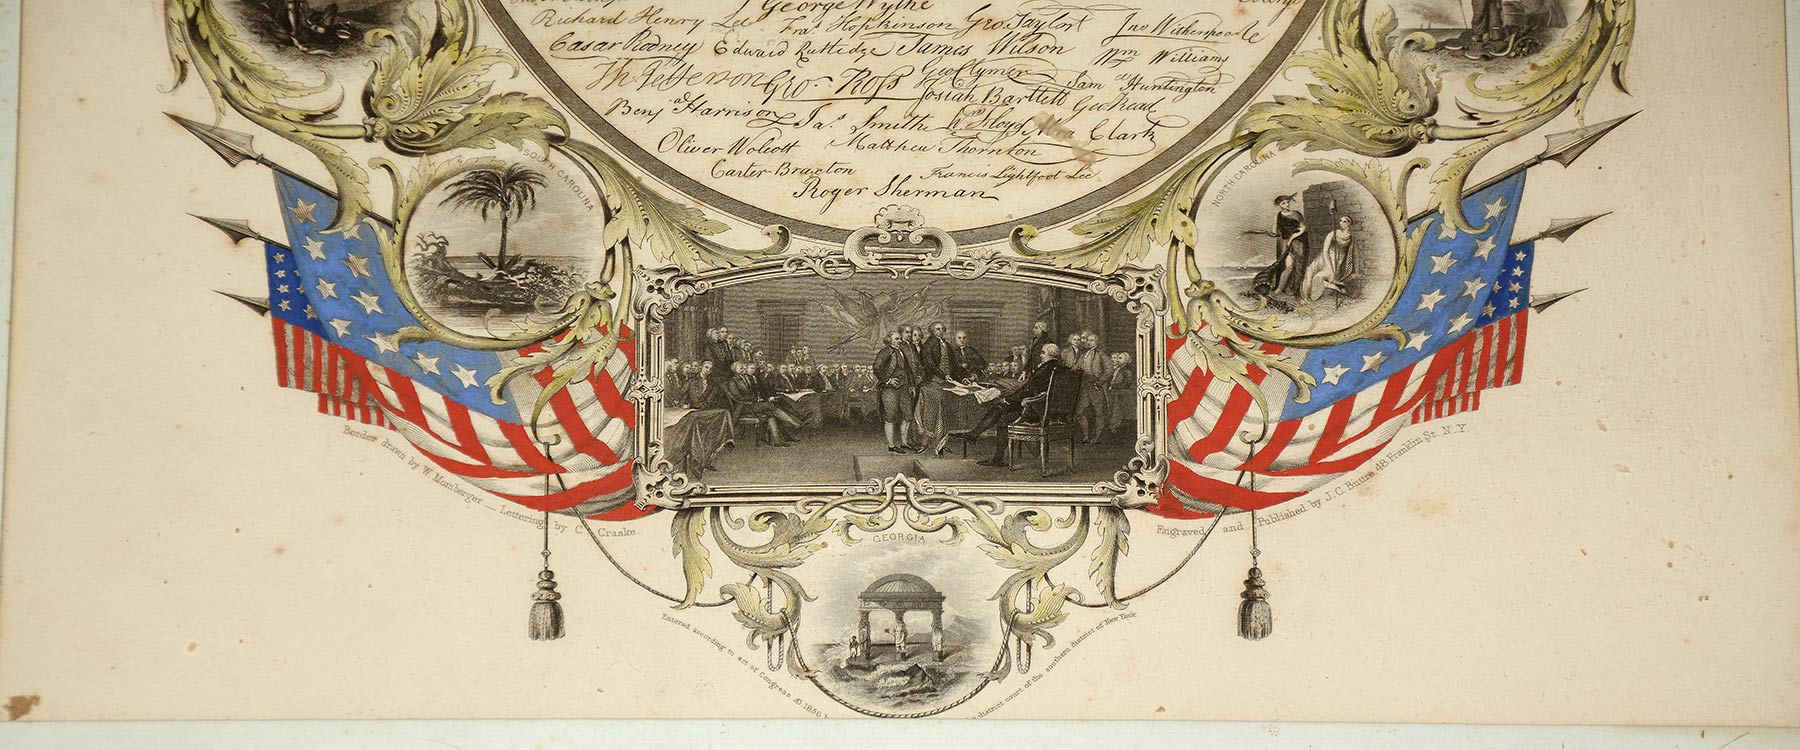 George Wythe
Richard Henry Lee Fra.s Hopkinson Geo. Taylor Jno Witherspoon
Cæsar Rodney Edward Rutledge James Wilson Wm Williams
Th Jefferson Geo. Ross Geo Clymer Sam el Huntington
Josiah Bartlett Geo Read
Benj a Harrison Ja.s Smith Wm Floyd Abra Clark
Oliver Wolcott Matthew Thornton
Carter Braxton Francis Lightfoot Lee
Roger Sherman
SOUTH CAROLINA
NORTH CAROLINA
Border drawn by W. Momberger — Lettering by C. Craske.
Engraved and Published by J. C. Buttre, 48 Franklin St. N. Y.
GEORGIA
Entered according to act of Congress AD 1856
district court of the southern district of New York